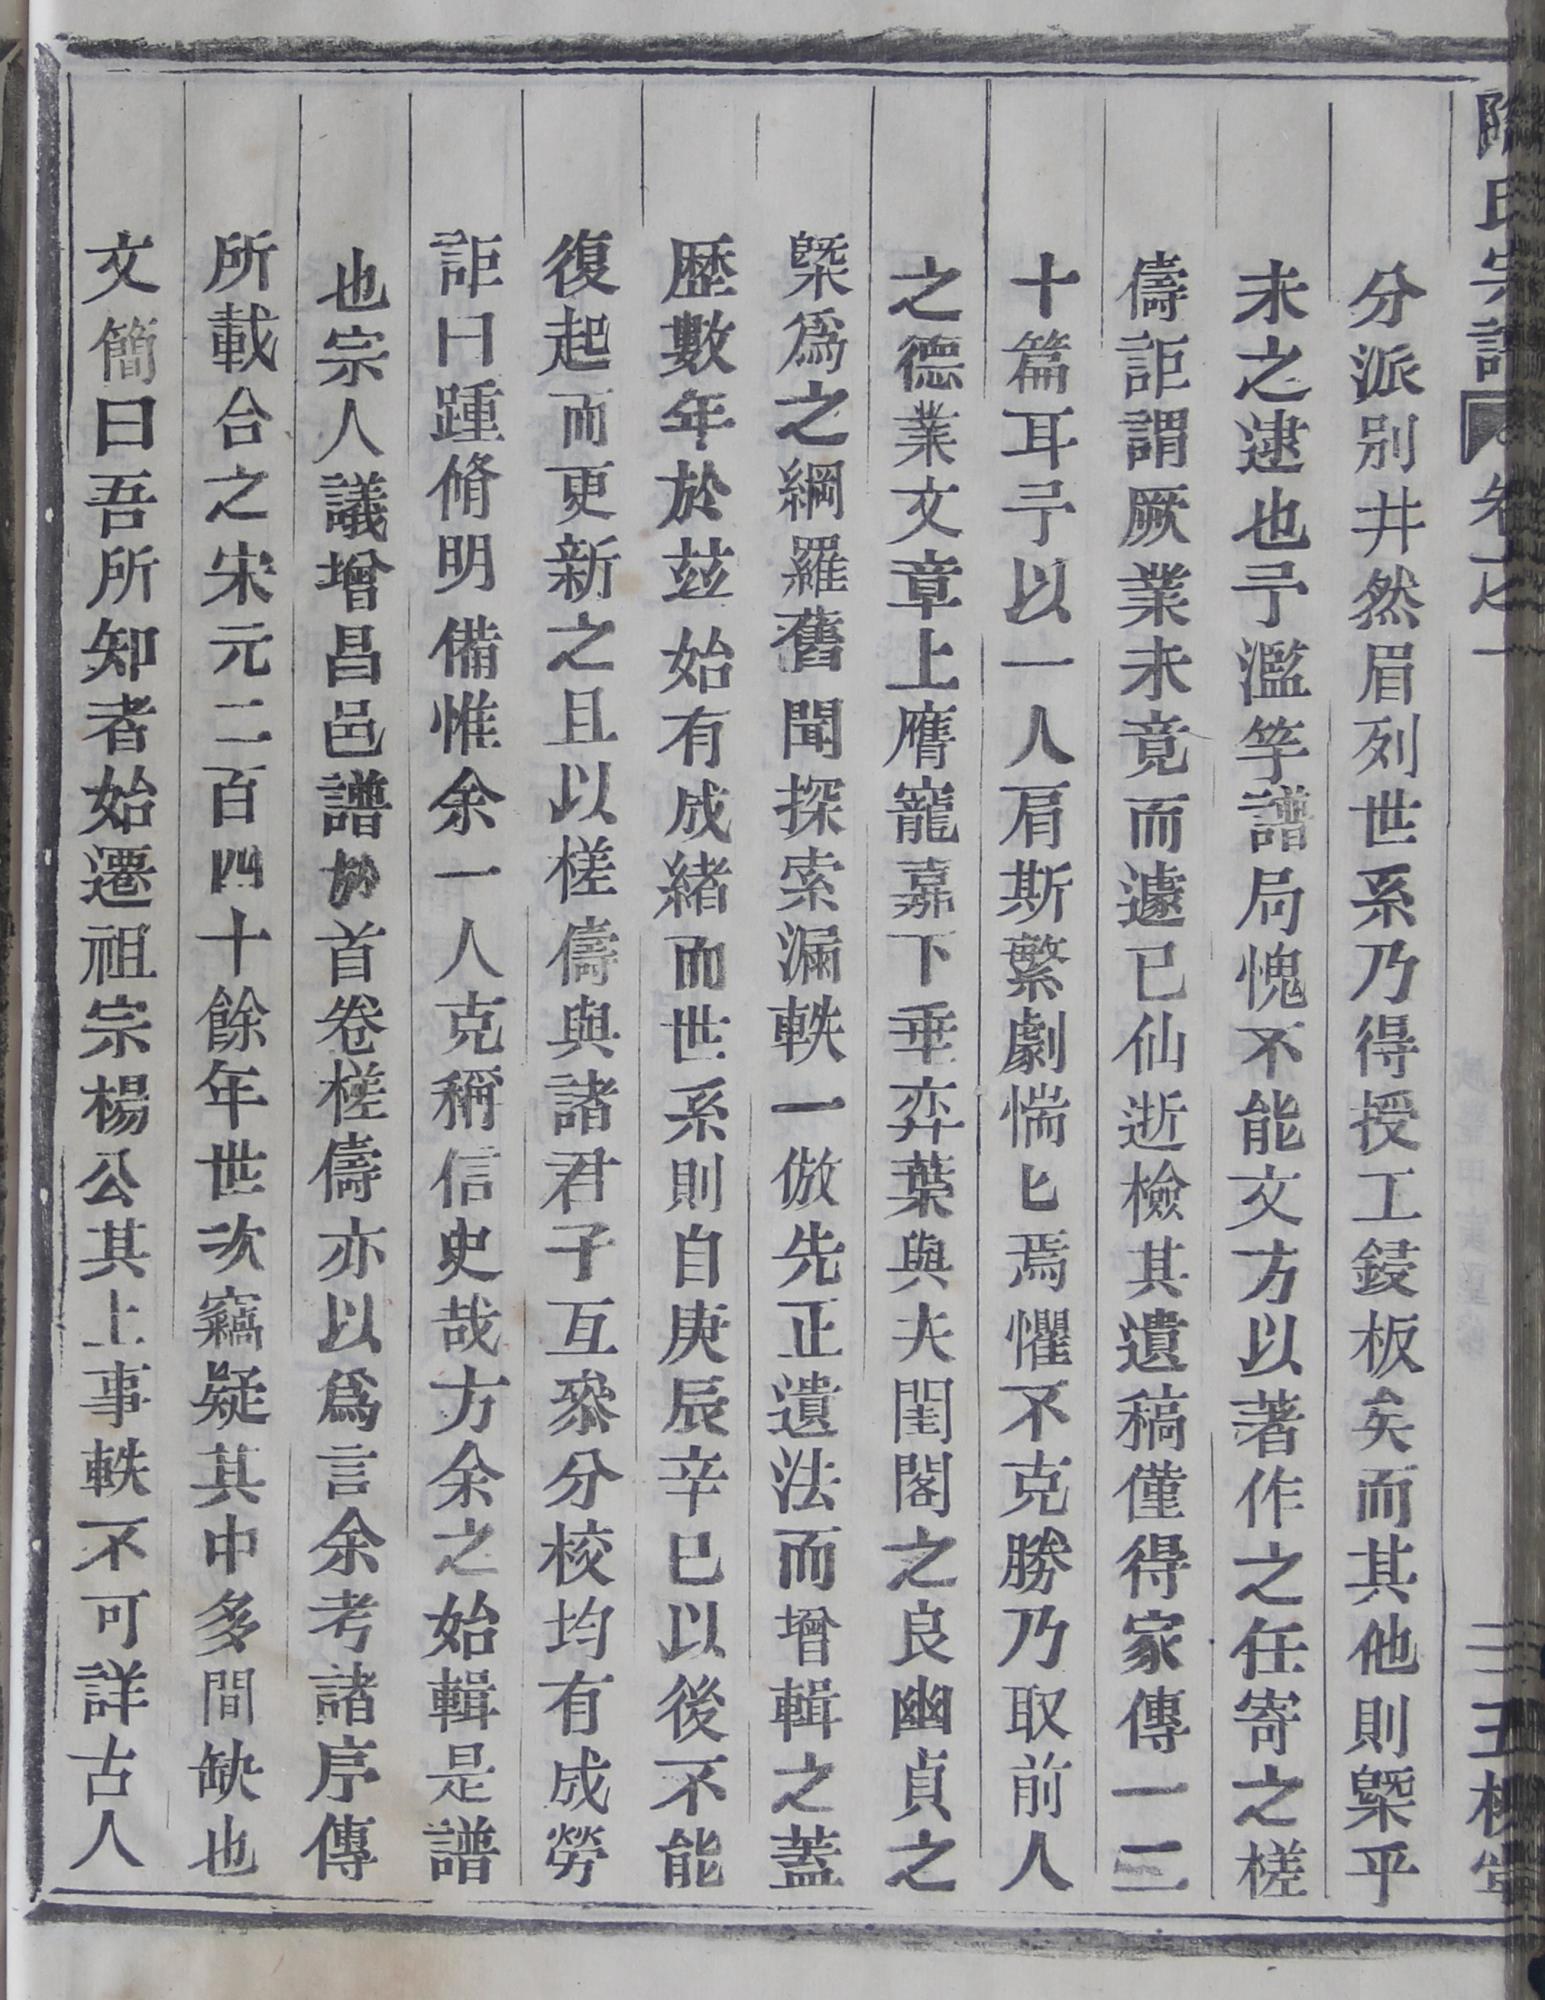 氏宗譜 卷之一 三 五柳堂
分派別井然眉列世系乃得授工鋟板矣而其他則槩乎
未之逮也予濫竽譜局愧不能文方以著作之任寄之槎
儔詎謂厥業未竟而遽已仙逝檢其遺稿僅得家傳一二
十篇耳予以一人肩斯繁劇惴匕焉懼不克勝乃取前人
之德業文章上膺寵嘉下垂弈葉與夫閨閣之良幽貞之
槩爲之綱羅舊聞探索漏軼一倣先正遺法而增輯之蓋
歷數年於茲始有成緒而世系則自庚辰辛巳以後不能
復起而更新之且以槎儔與諸君子互叅分校均有成勞
詎曰踵脩明備惟余一人克稱信史哉方余之始輯是譜
也宗人議增昌邑譜於首卷槎儔亦以爲言余考諸序傳
所載合之宋元二百四十餘年世次竊疑其中多間缺也
文簡曰吾所知者始遷祖宗楊公其上事軼不可詳古人